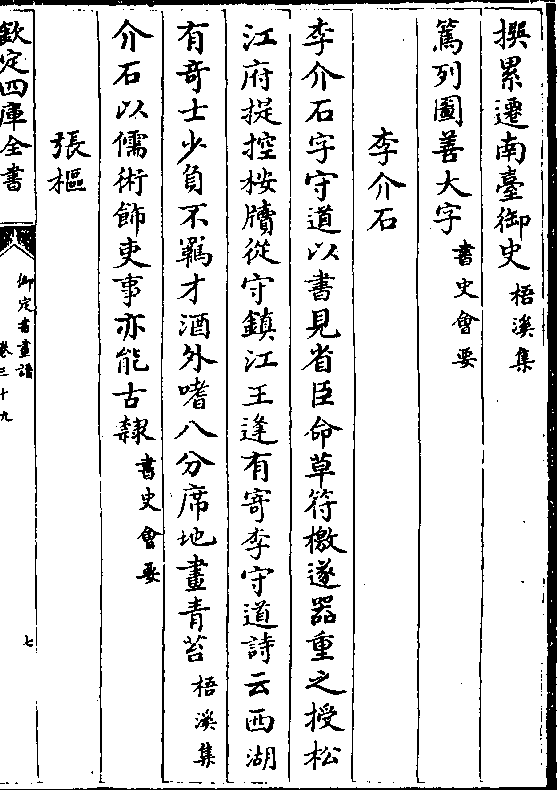 撰累遷南臺御史梧溪集
篤列圖善大字書史會要
李介石
李介石字守道以書見省臣命草符檄遂器重之授松
江府提控桉牘從守鎮江王逢有寄李守道詩云西湖
有竒士少負不羈才酒外嗜八分席地畫青苔梧溪集
介石以儒術飾吏事亦能古隸書史會要
張樞
欽定四庫全書
御定書畫譜
卷三十九
七